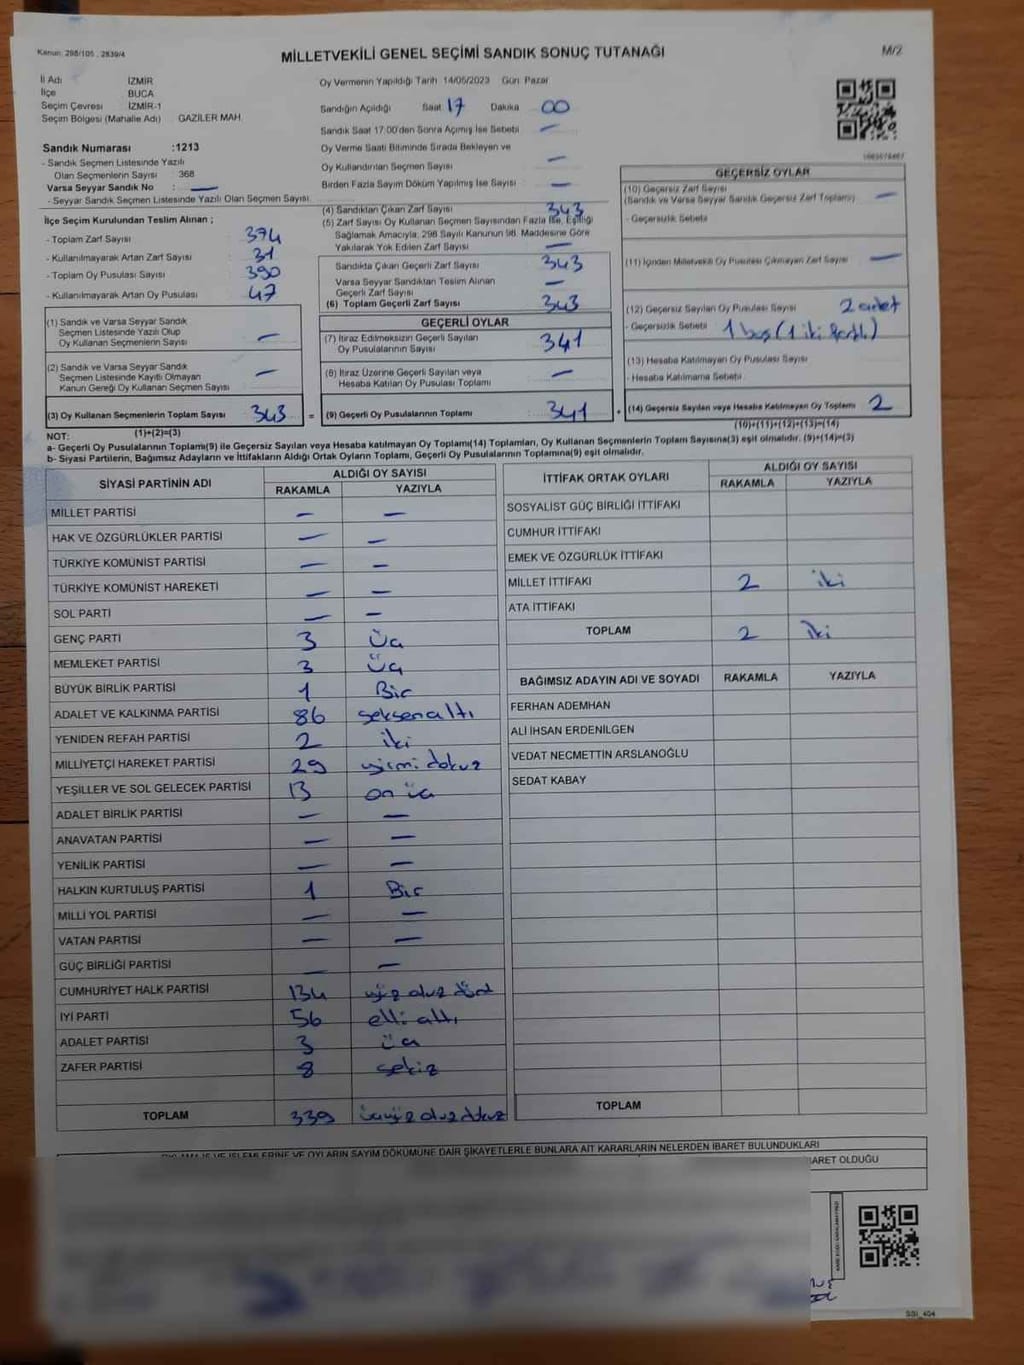 Kanun: 298/105 , 2839/4
MİLLETVEKİLİ GENEL SEÇİMİ SANDIK SONUÇ TUTANAĞI
M/2
İl Adı İZMİR
İlçe BUCA
Seçim Çevresi İZMİR-1
Seçim Bölgesi (Mahalle Adı) GAZİLER MAH.
Oy Vermenin Yapıldığı Tarih 14/05/2023 Gün Pazar
Sandığın Açıldığı Saat 17 Dakika 00
Sandık Saat 17:00'den Sonra Açımış İse Sebebi —
Oy Verme Saati Bitiminde Sırada Bekleyen ve
Oy Kullandırılan Seçmen Sayısı —
Birden Fazla Sayım Döküm Yapılmış İse Sayısı —
Sandık Numarası :1213
- Sandık Seçmen Listesinde Yazılı
Olan Seçmenlerin Sayısı : 368
Varsa Seyyar Sandık No : —
- Seyyar Sandık Seçmen Listesinde Yazılı Olan Seçmen Sayısı
İlçe Seçim Kurulundan Teslim Alınan ;
- Toplam Zarf Sayısı 374
- Kullanılmayarak Artan Zarf Sayısı 31
- Toplam Oy Pusulası Sayısı 390
- Kullanılmayarak Artan Oy Pusulası 47
(1) Sandık ve Varsa Seyyar Sandık
Seçmen Listesinde Yazılı Olup
Oy Kullanan Seçmenlerin Sayısı —
(2) Sandık ve Varsa Seyyar Sandık
Seçmen Listesinde Kayıtlı Olmayan
Kanun Gereği Oy Kullanan Seçmen Sayısı —
(3) Oy Kullanan Seçmenlerin Toplam Sayısı 343 =
(1)+(2)=(3)
(4) Sandıktan Çıkan Zarf Sayısı 343
(5) Zarf Sayısı Oy Kullanan Seçmen Sayısından Fazla İse, Eşitliği
Sağlamak Amacıyla, 298 Sayılı Kanunun 98. Maddesine Göre
Yakılarak Yok Edilen Zarf Sayısı —
Sandıkta Çıkan Geçerli Zarf Sayısı 343
Varsa Seyyar Sandıktan Teslim Alınan
Geçerli Zarf Sayısı —
(6) Toplam Geçerli Zarf Sayısı 343
GEÇERLİ OYLAR
(7) İtiraz Edilmeksizin Geçerli Sayılan
Oy Pusulalarının Sayısı 341
(8) İtiraz Üzerine Geçerli Sayılan veya
Hesaba Katılan Oy Pusulası Toplamı —
(9) Geçerli Oy Pusulalarının Toplamı 341 +
GEÇERSİZ OYLAR
(10) Geçersiz Zarf Sayısı
(Sandık ve Varsa Seyyar Sandık Geçersiz Zarf Toplamı) —
- Geçersizlik Sebebi
(11) İçinden Milletvekili Oy Pusulası Çıkmayan Zarf Sayısı —
(12) Geçersiz Sayılan Oy Pusulası Sayısı 2 adet
- Geçersizlik Sebebi 1 boş (1 iki
(13) Hesaba Katılmayan Oy Pusulası Sayısı
- Hesaba Katılmama Sebebi
(14) Geçersiz Sayılan veya Hesaba Katılmayan Oy Toplamı 2
(10)+(11)+(12)+(13)=(14)
NOT:
a- Geçerli Oy Pusulalarının Toplamı(9) ile Geçersiz Sayılan veya Hesaba katılmayan Oy Toplamı(14) Toplamları, Oy Kullanan Seçmenlerin Toplam Sayısına(3) eşit olmalıdır. (9)+(14)=(3)
b- Siyasi Partilerin, Bağımsız Adayların ve İttifakların Aldığı Ortak Oyların Toplamı, Geçerli Oy Pusulalarının Toplamına(9) eşit olmalıdır.
SİYASİ PARTİNİN ADI ALDIĞI OY SAYISI
RAKAMLA YAZIYLA
MİLLET PARTİSİ — —
HAK VE ÖZGÜRLÜKLER PARTİSİ — —
TÜRKİYE KOMÜNİST PARTİSİ — —
TÜRKİYE KOMÜNİST HAREKETİ — —
SOL PARTİ — —
GENÇ PARTİ 3 Üç
MEMLEKET PARTİSİ 3 Üç
BÜYÜK BİRLİK PARTİSİ 1 Bir
ADALET VE KALKINMA PARTİSİ 86 seksenaltı
YENİDEN REFAH PARTİSİ 2 iki
MİLLİYETÇİ HAREKET PARTİSİ 29 yirmi dokuz
YEŞİLLER VE SOL GELECEK PARTİSİ 13 on üç
ADALET BİRLİK PARTİSİ — —
ANAVATAN PARTİSİ — —
YENİLİK PARTİSİ — —
HALKIN KURTULUŞ PARTİSİ 1 Bir
MİLLİ YOL PARTİSİ — —
VATAN PARTİSİ — —
GÜÇ BİRLİĞİ PARTİSİ — —
CUMHURİYET HALK PARTİSİ 134 yüz otuz dört
İYİ PARTİ 56 elli altı
ADALET PARTİSİ 3 üç
ZAFER PARTİSİ 8 sekiz
TOPLAM 339 üçyüz otuz dokuz
İTTİFAK ORTAK OYLARI ALDIĞI OY SAYISI
RAKAMLA YAZIYLA
SOSYALİST GÜÇ BİRLİĞİ İTTİFAKI
CUMHUR İTTİFAKI
EMEK VE ÖZGÜRLÜK İTTİFAKI
MİLLET İTTİFAKI 2 iki
ATA İTTİFAKI
TOPLAM 2 iki
BAĞIMSIZ ADAYIN ADI VE SOYADI RAKAMLA YAZIYLA
FERHAN ADEMHAN
ALİ İHSAN ERDENİLGEN
VEDAT NECMETTİN ARSLANOĞLU
SEDAT KABAY
TOPLAM
VE İŞLEMLERİNE VE OYLARIN SAYIM DÖKÜMÜNE DAİR ŞİKAYETLERLE BUNLARA AİT KARARLARIN NELERDEN İBARET BULUNDUKLARI
BARET OLDUĞU
SSI_404